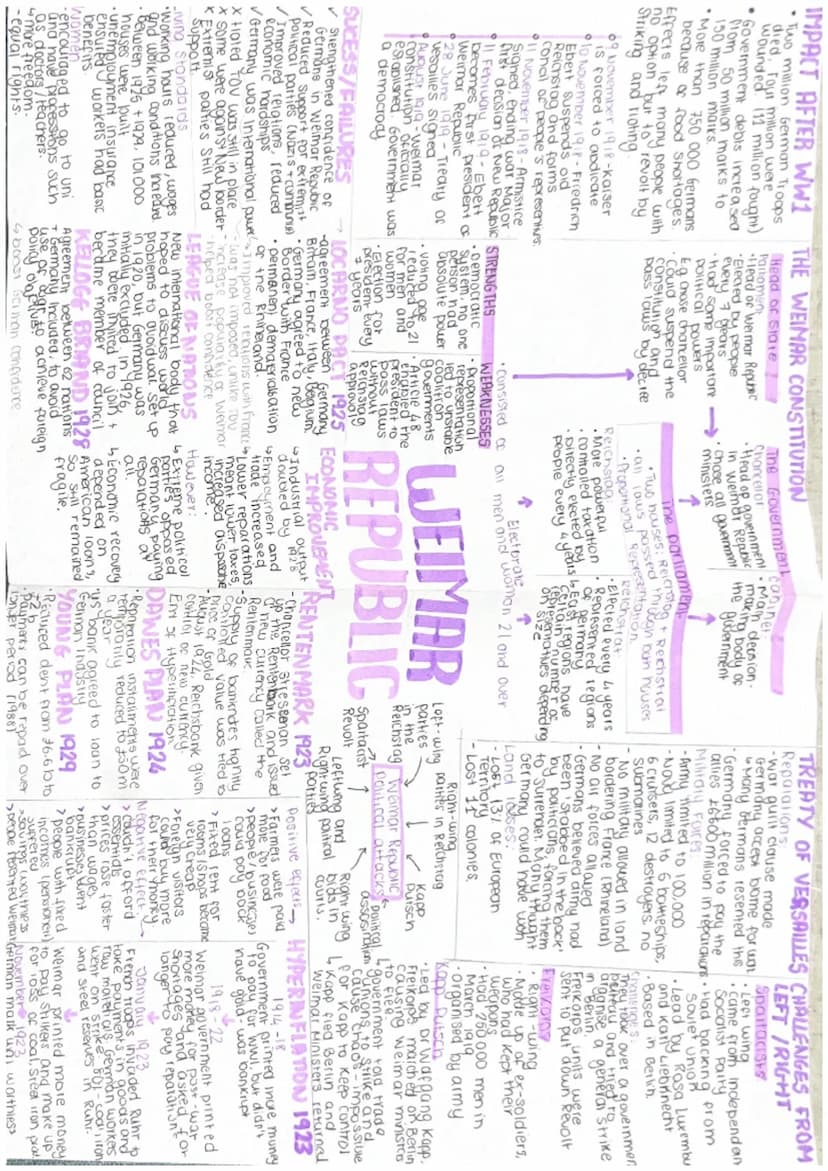 IMPACT AFTER WW1
• Two million German Troops
died, Four million were
wounded (11 million fought)
• Government debts increased
from 50 million marks to
150 million marks.
• More than 750 000 Germans
because of food shortages.
Effects left many people with
no option but to revolt by
striking and rioting.
9 November 1918 - Kaiser
is forced to abdicate
10 November 1918 - Friedrich
Ebert suspends old
Reichstag and forms
council of people's representatives.
11 November 1918 - Armistice
signed, ending war. Major
first decision of New Republic
11 February 1919 - Ebert
becomes first president of
Weimar Republic
28 June 1919 - Treaty of
Versailles signed
August 1919 - Weimar
constitution officially
established. Government was
a democracy
SUCESS/FAILURES
✓ Strengthened confidence of
Germans in Weimar Republic
✓ Reduced support for extremist
political parties (Nazis + communist)
✓ Improved relations, reduced
economic hardships
✓ Germany was international power
x Hated TOV was still in place
x Some were against New border
x Extremist parties still had
support.
Living standards
• Working hours reduced, wages
and working conditions increased
• Between 1925 + 1929, 101 000
houses were built
• Unemployment insurance
ensured workers had basic
benefits
Women
- encouraged to go to uni
and have processions such
as doctors/teachers.
↳ more freedom
- equal rights.
THE WEIMAR CONSTITUTION
Head of State
• Head of Weimar Republic
• Elected by people
every 7 years
• Had some important
political powers
Eg chose chancellor
• Could suspend the
constitution and
pass laws by decree
The Government
Chancellor
• Head of government
in Weimar Republic
• Chose all government
ministers
Cabinet
• Main decision-
making body of
the government
The parliament
• Two houses: Reichstag, Reichstrat
• all laws passed through both houses
• Proportional Representation
Reichstag
• More powerful
• controlled taxation
• Directly elected by
people every 4 years
Reichstrat
• Elected every 4 years
• Represented regions
of Germany
↳ Each regions have
certain number of
representatives depending
on size
Electorate
• Consisted of all men and women 21 and over
STRENGTHS
• Democratic
system, no one
person had
absolute power
• Voting age
reduced to 21
for men and
women
• Election for
president every
7 years
WEAKNESSES
• Proportional
representation
led to unstable
coalition
governments
• Article 48
enabled the
president to
pass laws
without
Reichstag
approval
WEIMAR
REPUBLIC
→ LOCARNO PACT 1925
- agreement between Germany
Britain, France, Italy, Belgium,
• Germany agreed to new
Border with France
• permanent demilitarisation
of the Rhineland.
↳ improved relations with France
- was not imposed, unlike TOV
- increase popularity of Weimar
- helped boost confidence
LEAGUE OF NATIONS
New international body that
hoped to discuss world
problems to avoid war. Set up
in 1920 but Germany was
initially excluded. In 1926,
they were invited to join +
became member of council
KELLOGG BRIAND 1928
Agreement between 62 nations
+ Germany included, to avoid
use of war to achieve foreign
policy objectives
↳ boost German confidence
ECONOMIC
IMPROVEMENT
↳ Industrial output
doubled by 1928
↳ Employment and
trade increased
↳ Lower reparations
meant lower taxes,
increased disposable
income.
However:
↳ Extreme political
parties opposed
Germany paying
reparations at
all
↳ Economic recovery
depended on
American loans,
so still remained
fragile.
RENTENMARK 1923
- Chancellor Stresemann set
up the Rentenbank and issued
a new currency called the
Rentenmark.
• Supply of banknotes tightly
controlled value was tied to
price of Gold
• August 1924 Reichsbank given
control of new currency
End of Hyperinflation
DAWES PLAN 1924
• Reparation instalments were
temporarily reduced to £50m
a year
• US bank agreed to loan to
German industry
YOUNG PLAN 1929
• Reduced debt from £6.6b to
£2b
• Payments can be repaid over
longer period (1988)
TREATY OF VERSAILLES
Reparations:
• War guilt clause made
Germany accept blame for war
↳ Many Germans resented this
• Germany forced to pay the
allies £6600 million in reparations
Military Forces:
• Army limited to 100.000
• Navy limited to 6 battleships,
6 cruisers, 12 destroyers, no
submarines
• No military allowed in land
bordering France (Rhineland)
• No air forces allowed
• Germans believed army had
been 'stabbed in the back'
by politicians, forcing them
to surrender. Many thought
Germany could have won
Land losses:
• Lost 13% of European
Territory
• Lost 11 colonies.
Weimar Republic
Political attacks
Left-wing
parties
in the
Reichstag
Right-wing
parties in Reichstag
Kapp
Putsch
Spartacist
Revolt
Left wing and
Right wing political
parties
Political
assassinations
Right wing
bias in
courts.
CHALLENGES FROM
LEFT / RIGHT
Spartacists
• Left wing
• Came from Independent
Socialist Party
• Had backing from
Soviet Union
• Lead by Rosa Luxemburg
and Karl Liebknecht
• Based in Berlin.
Challenges:
They took over a government
and tried to
organise a general strike
in Berlin.
Freikorps units were
sent to put down Revolt
Freikorps
• Right wing
• Made up of ex-soldiers,
who had kept their
weapons
• Had 250 000 men in
March 1919
• Organised by army
Kapp Putsch
• Led by Dr Wolfgang Kapp.
Freikorps marched on Berlin
causing Weimar ministers
to flee
↳ government told trade
unions to strike and
cause chaos - impossible
for Kapp to keep control
↳ Kapp fled Berlin and
Weimar Ministers returned
HYPERINFLATION 1923
1914-18
Government printed more money
to pay for WW1, but didn't
have gold - was bankrupt
1918-22
Weimar government printed
more money for post-war
shortages and asked for
longer to pay reparations
January 1923
French troops invaded Ruhr to
take payments in goods and
raw materials. German workers
went on strike - 80% coal, iron
and steel reserves in Ruhr
Weimar printed more money
to pay strikers and make up
for loss of coal, steel, iron prod.
November 1923
German mark was worthless
Positive effects →
> Farmers were paid
more for food
> people (businesses)
could pay back
loans
> Fixed rent for
rooms/shops became
very cheap
> Foreign visitors
could buy more
for their money
Negative effects
> couldn't afford
essentials
> prices rose faster
than wage.
> businesses went
bankrupt
> people with fixed
incomes (pensioners)
suffered
> savings worthless
> people resented Weimar